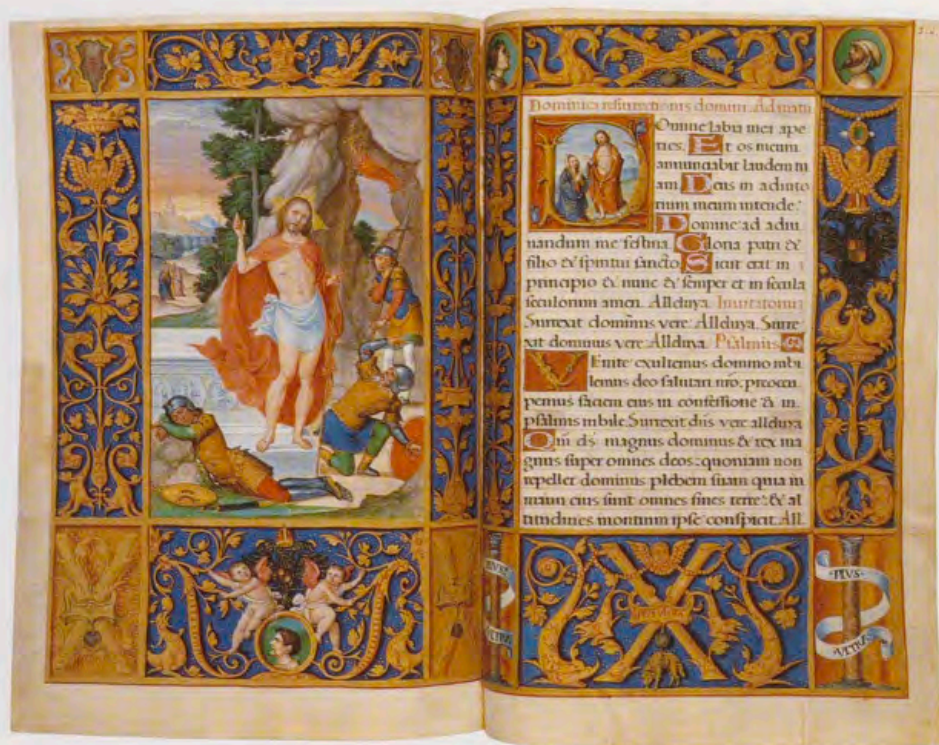 Dominica resurrectionis domini. Ad matu
Omine labia mea ape
ries. Et os meum
annunciabit laudem tu
am. Deus in adiuto
rium meum intende.
Domine ad adiu
uandum me festina. Gloria patri &
filio & spiritui sancto. Sicut erat in
principio & nunc & semper et in secula
seculorum amen. Alleluya. Inuitatoriu
Surrexit dominus vere Alleluya. Surre
xit dominus vere Alleluya. Psalmus
VEnite exultemus domino iubi
lemus deo salutari nrõ: preoccu
pemus faciem eius in confessione & in
psalmis iubile. Surrexit dñs vere alleluya
Qm ds magnus dominus & rex ma
gnus super omnes deos: quoniam non
repellet dominus plebem suam quia in
manu eius sunt omnes fines terre: & al
titudines montium ipse conspicit. All
PLVS
VLTRA